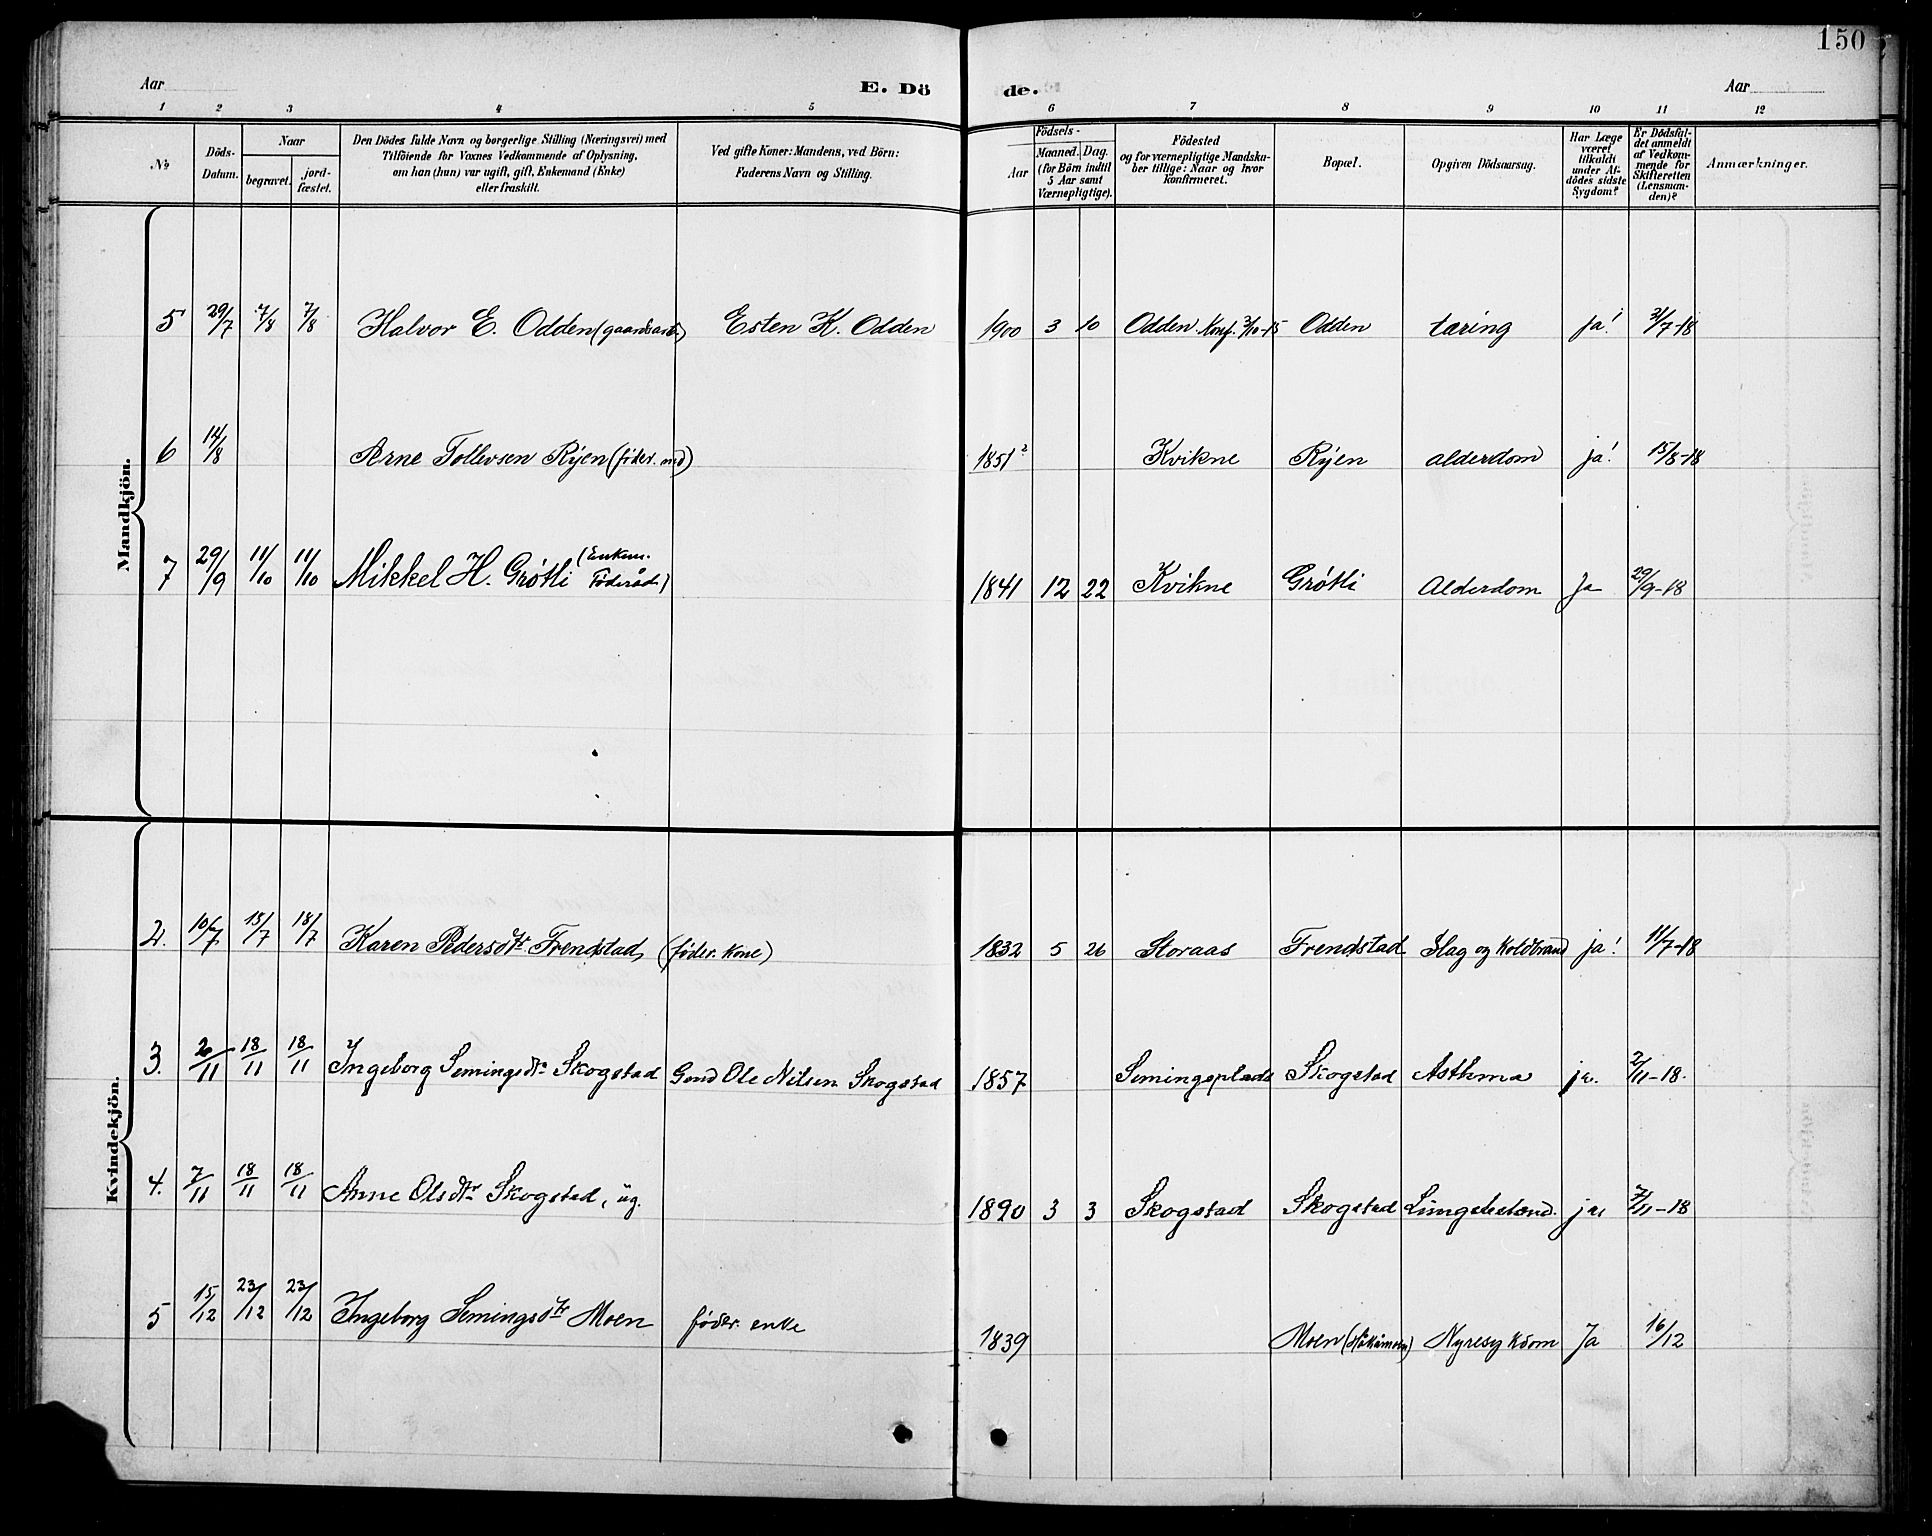 150
Aar E. Döde. Aar
1 2 3 4 5 6 7 8 9 10 11 12
No
Döds-
Datum.
Naar
begravet.
jord-
fæstet.
Den Dödes fulde Navn og borgerlige Stilling (Næringsvei) med
Tilföiende for Voxnes Vedkommende af Oplysning,
om han (hun) var ugift, gift, Enkemand (Enke)
eller fraskilt.
Ved gifte Koner: Mandens, ved Börn:
Faderens Navn og Stilling.
Födsels-
Aar
Maaned. Dag.
(for Börn indtil
5 Aar samt
Værnepligtige).
Födested
og for værnepligtige Mandska-
ber tillige: Naar og hvor
konfirmeret.
Bopæl.
Opgiven Dödsaarsag.
Har Læge
været
tilkaldt
under Af-
dödes sidste
Sygdom?
Er Dödsfal-
det anmeldt
af Vedkom-
mende for
Skifteretten
(Lensman-
den)?
Anmærkninger.
Mandkjön.
5 29/7 7/8 7/8 Halvor E. Odden (gaardsarb.) Esten K. Odden 1900 3 10 Odden Konf. 3/10-15 Odden tæring ja! 31/7-18
6 14/8 Arne Tollevsen Ryen (föder. md) 1851 2 Kvikne Ryen alderdom ja! 15/8-18
7 29/9 11/10 11/10 Mikkel H. Grøtli (Enkem. Föderåd.) 1841 12 22 Kvikne Grøtli Alderdom Ja 29/9-18
Kvindekjön.
2. 10/7 18/7 18/7 Karen Pedersdtr Frendstad, (føder. kone) 1832 5 26 Storaas Frendstad Slag og koldbrand ja! 11/7-18
3. 2/11 18/11 18/11 Ingeborg Semingsdtr Skogstad Gmd Ole Nilsen Skogstad 1857 Semingsplads Skogstad Asthma ja. 2/11-18.
4. 7/11 18/11 18/11 Anne Olsdtr Skogstad, ug. 1890 3 3 Skogstad Skogstad Lungebetænd. ja 7/11-18
5 15/12 23/12 23/12 Ingeborg Semingsdtr Moen føder. enke 1839 Moen Nyresykdom Ja 16/12